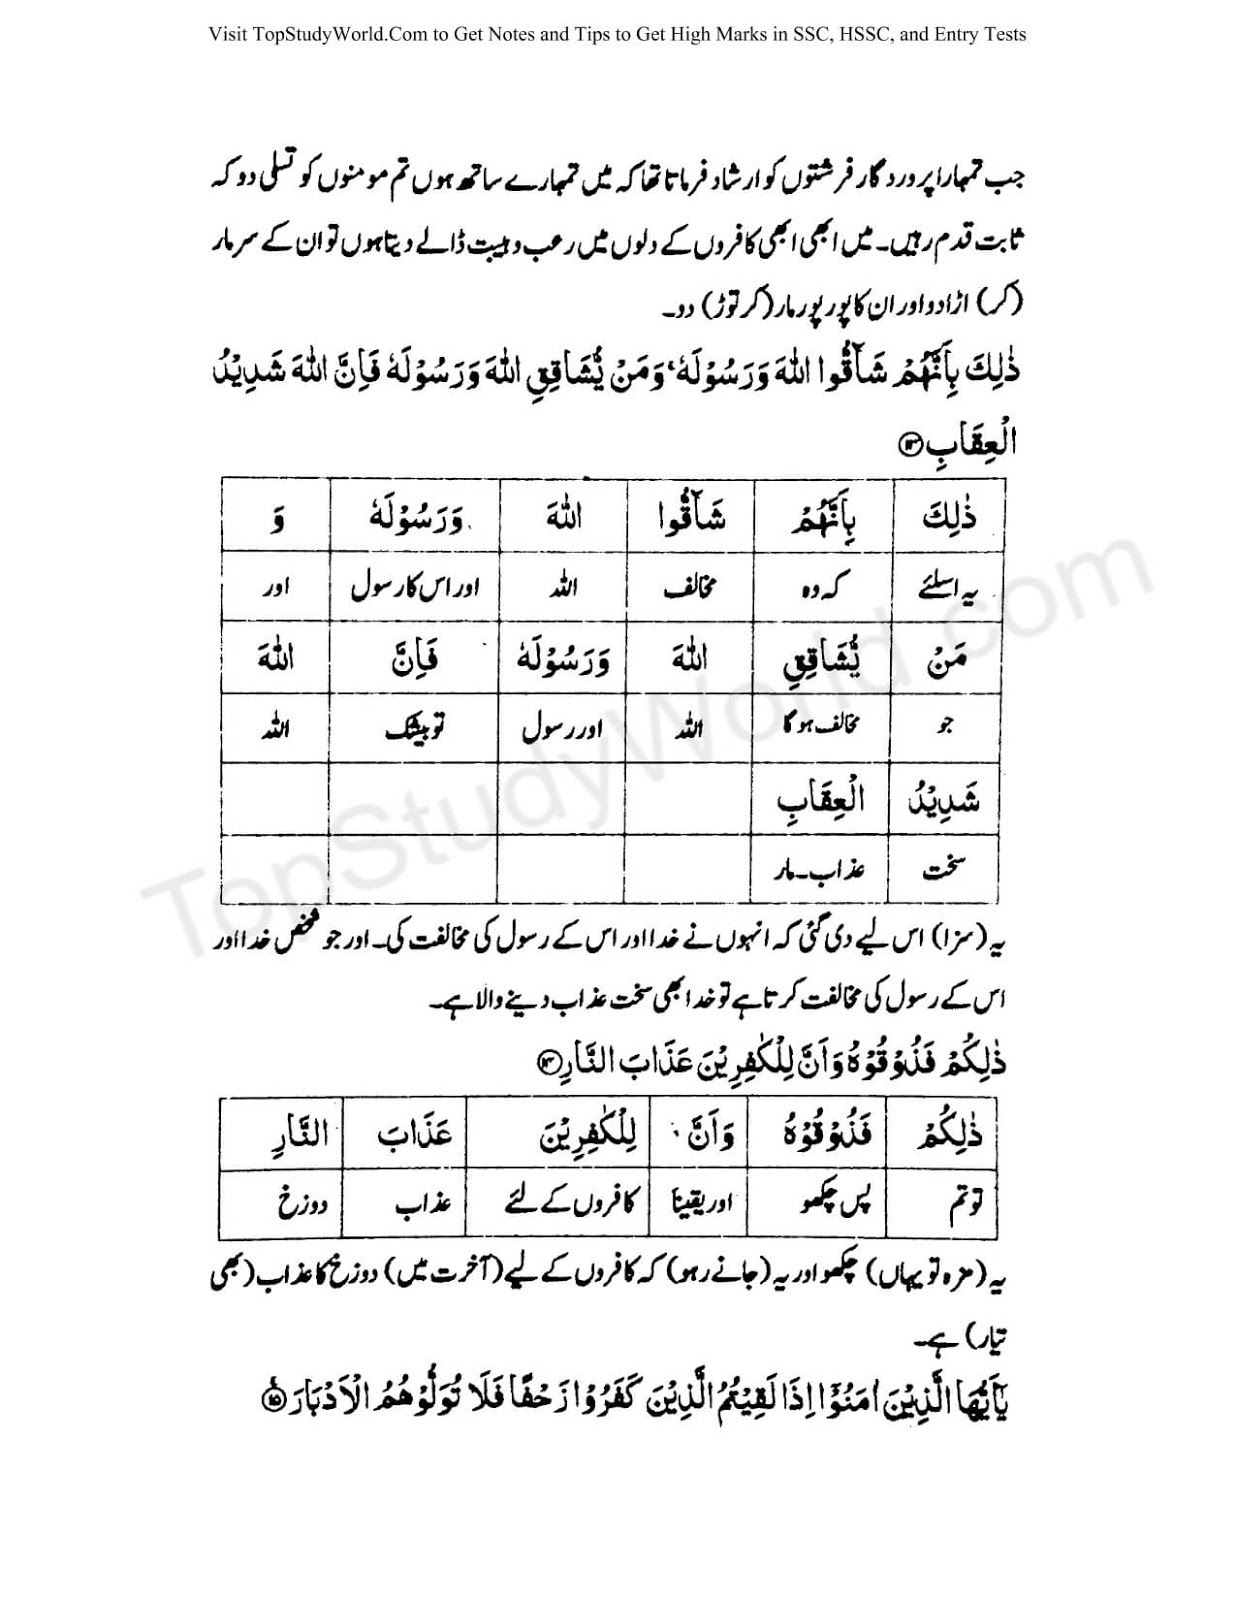 Visit TopStudyWorld.Com to Get Notes and Tips to Get High Marks in SSC, HSSC, and Entry Tests
جب تمہارا پروردگار فرشتوں کو ارشاد فرماتا تھا کہ میں تمہارے ساتھ ہوں تم مومنوں کو تسلی دو کہ
ثابت قدم رہیں۔ میں ابھی ابھی کافروں کے دلوں میں رعب و ہیبت ڈالے دیتا ہوں تو ان کے سر مار
(کر) اڑا دو اور ان کا پور پور مار (کر توڑ) دو۔
ذٰلِكَ بِاَنَّهُمْ شَآقُّوا اللّٰهَ وَرَسُوْلَهٗ ۚ وَمَنْ يُّشَاقِقِ اللّٰهَ وَرَسُوْلَهٗ فَاِنَّ اللّٰهَ شَدِيْدُ
الْعِقَابِ ۱۳
ذٰلِكَ بِاَنَّهُمْ شَآقُّوا اللّٰهَ وَرَسُوْلَهٗ وَ
یہ اسلئے کہ وہ مخالف اللہ اور اس کا رسول اور
مَنْ يُّشَاقِقِ اللّٰهَ وَرَسُوْلَهٗ فَاِنَّ اللّٰهَ
جو مخالف ہوگا اللہ اور رسول تو بیشک اللہ
شَدِيْدُ الْعِقَابِ
سخت عذاب۔مار
یہ (سزا) اس لیے دی گئی کہ انہوں نے خدا اور اس کے رسول کی مخالفت کی۔ اور جو شخص خدا اور
اس کے رسول کی مخالفت کرتا ہے تو خدا بھی سخت عذاب دینے والا ہے۔
ذٰلِكُمْ فَذُوْقُوْهُ وَاَنَّ لِلْكٰفِرِيْنَ عَذَابَ النَّارِ ۱۴
ذٰلِكُمْ فَذُوْقُوْهُ وَاَنَّ لِلْكٰفِرِيْنَ عَذَابَ النَّارِ
تو تم پس چکھو اور یقیناً کافروں کے لئے عذاب دوزخ
یہ (مزہ تو یہاں) چکھو اور یہ (جانے رہو) کہ کافروں کے لیے (آخرت میں) دوزخ کا عذاب (بھی
تیار) ہے۔
يٰٓاَيُّهَا الَّذِيْنَ اٰمَنُوْٓا اِذَا لَقِيْتُمُ الَّذِيْنَ كَفَرُوْا زَحْفًا فَلَا تُوَلُّوْهُمُ الْاَدْبَارَ ۱۵
TopStudyWorld.com